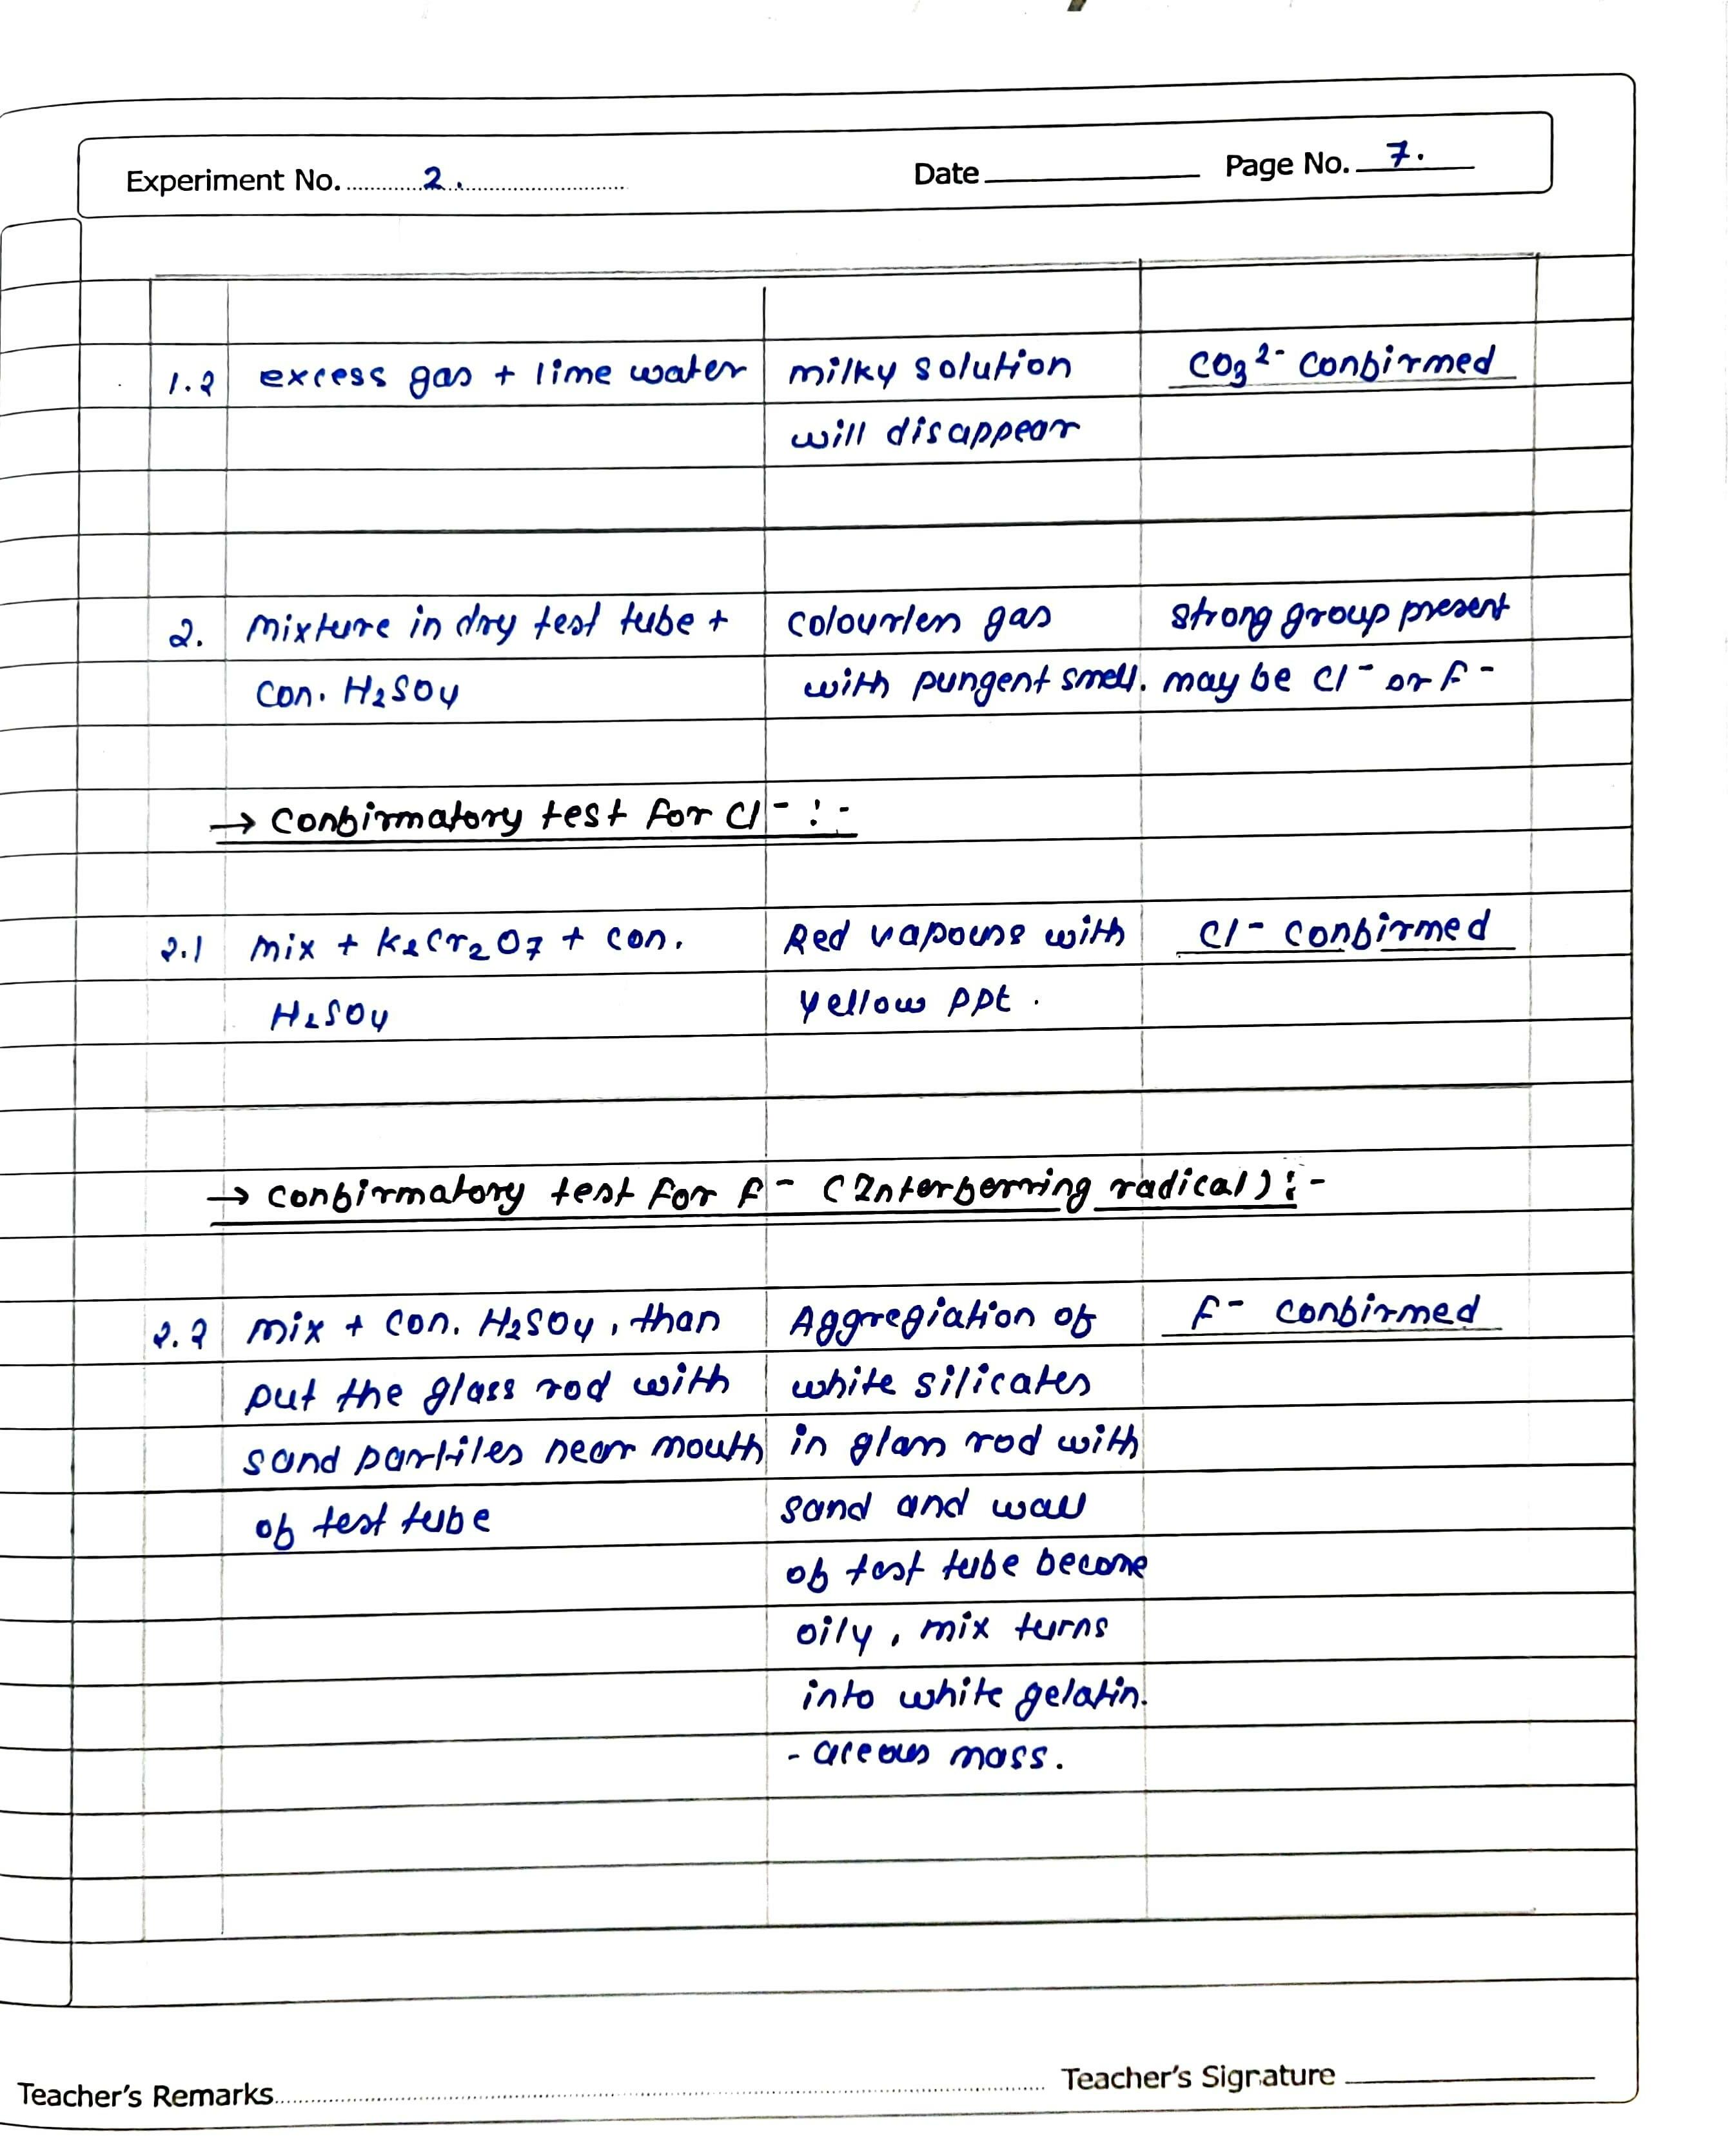 Experiment No. 2. Date Page No. 7.
1.2 excess gas + lime water milky solution CO3 2- confirmed
will disappear
2. mixture in dry test tube + colourless gas strong group present
con. H2SO4 with pungent smell. may be Cl- or F-
→ confirmatory test for Cl- :-
2.1 mix + K2Cr2O7 + con. Red vapours with Cl- confirmed
H2SO4 yellow ppt.
→ confirmatory test for F- (Interferring radical) :-
2.2 mix + con. H2SO4, than Aggregiation of F- confirmed
put the glass rod with white silicates
sand partiles near mouth in glass rod with
of test tube sand and wall
of test tube become
oily, mix turns
into white gelatin.
- aceous mass.
Teacher's Remarks Teacher's Signature